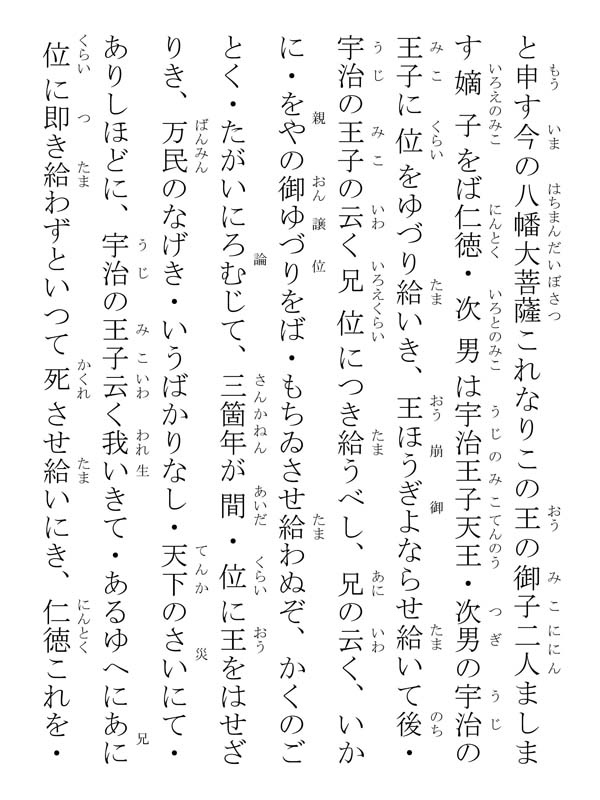 と申す今の八幡大菩薩これなりこの王の御子二人ましま
す嫡子をば仁徳・次男は宇治王子天王・次男の宇治の
王子に位をゆづり給いき、王ほうぎよならせ給いて後・
宇治の王子の云く兄位につき給うべし、兄の云く、いか
に・をやの御ゆづりをば・もちゐさせ給わぬぞ、かくのご
とく・たがいにろむじて、三箇年が間・位に王をはせざ
りき、万民のなげき・いうばかりなし・天下のさいにて・
ありしほどに、宇治の王子云く我いきて・あるゆへにあに
位に即き給わずといつて死させ給いにき、仁徳これを・